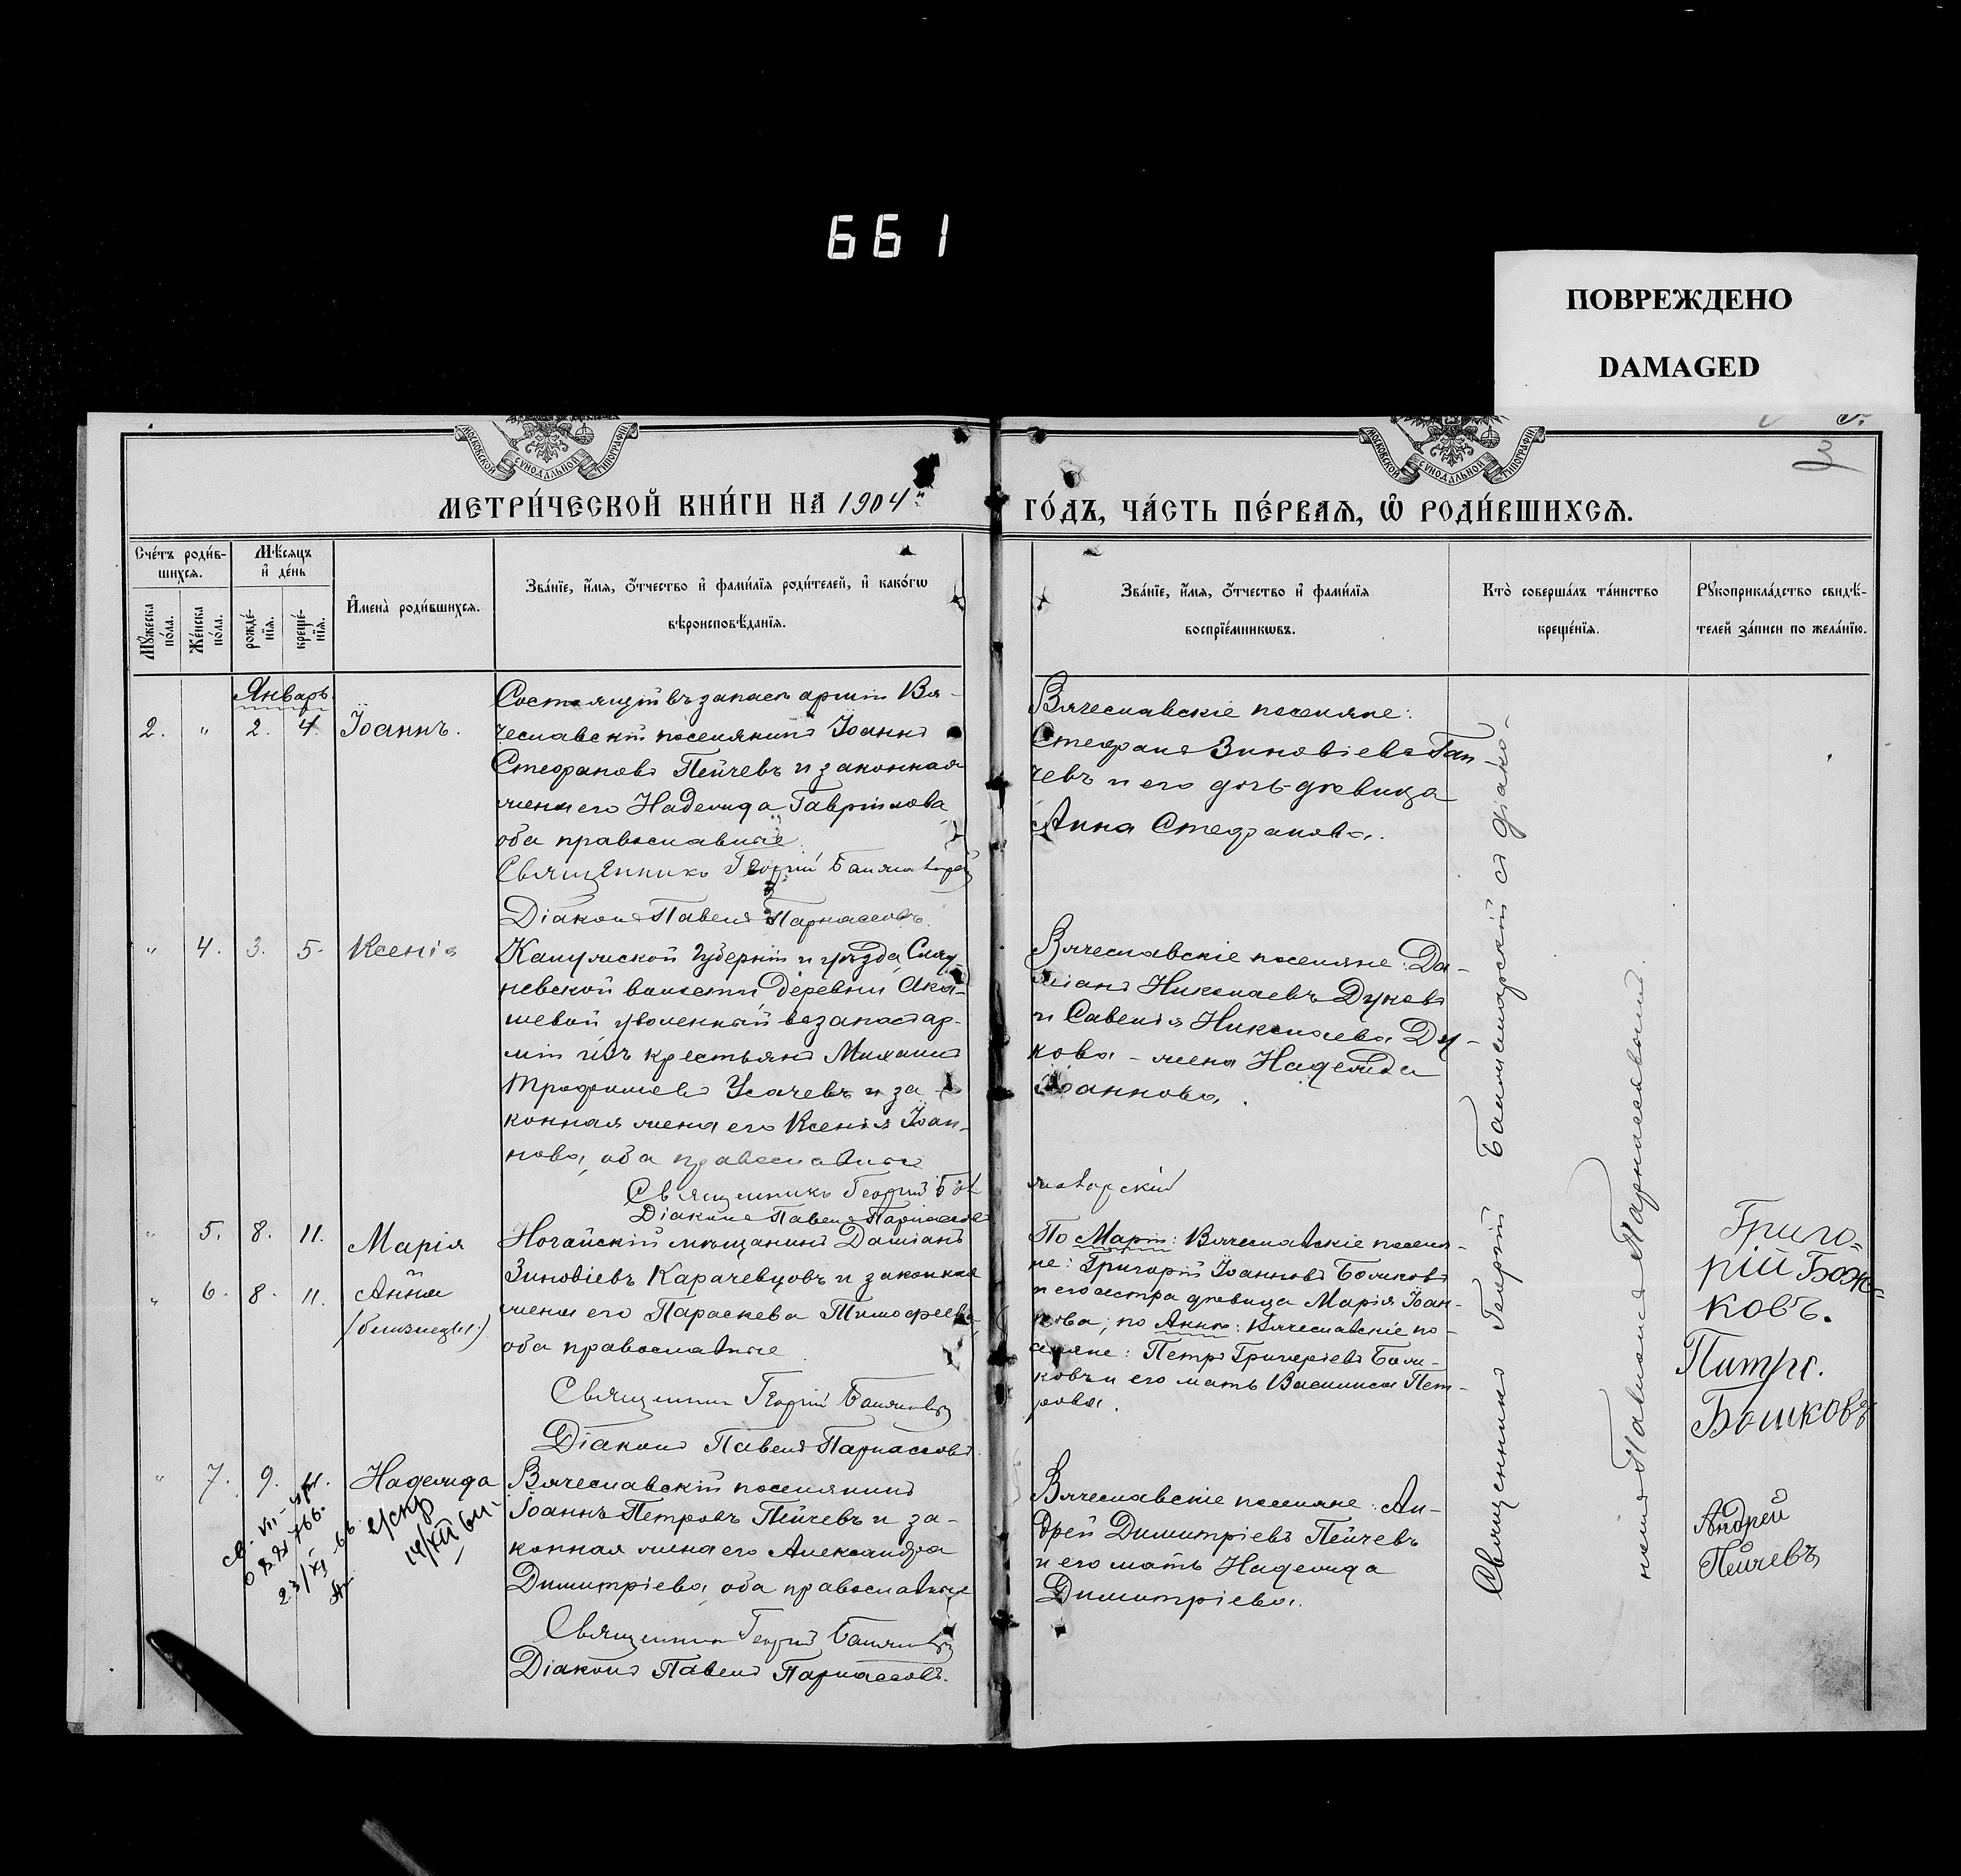 661
ПОВРЕЖДЕНО
DAMAGED
МОСКОВСКОЙ СѴНОДАЛЬНОЙ ТИПОГРАФІИ
МОСКОВСКОЙ СѴНОДАЛЬНОЙ ТИПОГРАФІИ
3
МЕТРИ́ЧЕСКОЙ КНИ́ГИ НА 1904й
ГО́ДЪ, ЧА́СТЬ ПЕ́РВАѦ, Ѡ҆ РОДИ́ВШИХСѦ.
Сче́тъ роди́вшихся.
Мѣ́сяцъ и҆ де́нь
Мꙋ́жеска по́ла.
Же́нска по́ла.
рожде́нїя.
креще́нїя.
И҆мена̀ роди́вшихся.
Зва́нїе, и҆́мя, ѻ҆́тчество и҆ фами́лїя роди́телей, и҆ како́гѡ
вѣроисповѣ́данїя.
Зва́нїе, и҆́мя, ѻ҆́тчество и҆ фами́лїя
воспрїе́мникѡвъ.
Кто̀ соверша́лъ та́инство
креще́нїя.
Рꙋкоприкла́дство свидѣ́-
телей за́писи по жела́нїю.
Январь.
2. " 2. 4. Іоаннъ.
Состоящій въ запасѣ арміи Вя-
чеславскій поселянинъ Іоаннъ
Стефановъ Пейчевъ и законная
жена его Надежда Гаврiилова,
оба православные.
Священникъ Георгій
Діаконъ Павелъ Парнассовъ.
Вячеславскіе поселяне:
Стефанъ Зиновіевъ Ган-
чевъ и его дочь-дѣвица
Анна Стефанова.
" 4. 3. 5. Ксенія
Калужской губерніи и уѣзда,
невской волости, деревни Ака-
шевой уволенный въ запасъ ар-
міи изъ крестьянъ Михаилъ
Трофимовъ Усачевъ и за-
конная жена его Ксенія Іоан-
нова, оба православные
Священникъ Георгій
Діаконъ Павелъ Парнассовъ
Вячеславскіе поселяне: Да-
міанъ Николаевъ Дуковъ
и Савелія Николаева Ду-
кова - жена Надежда
Іоаннова.
" 5. 8. 11. Марія
" 6. 8. 11. Анна
(близнецы.)
Ногайскій мѣщанинъ Даміанъ
Зиновіевъ Карачевцовъ и законная
жена его Параскева Тимофеева,
оба православные.
Священникъ Георгій
Діаконъ Павелъ Парнассовъ.
По Маріи: Вячеславскіе поселя-
не: Григорій Іоанновъ Божковъ
и его сестра дѣвица Марія Іоан-
нова; по Аннѣ: Вячеславскіе по-
селяне: Петръ Григоріевъ Бож-
ковъ и его мать Василиса Пет-
рова.
Григо=
рій Бож=
ковъ.
Питръ.
Бошковъ
" 7. 9. 11. Надежда
Вячеславскій поселянинъ
Іоаннъ Петровъ Пейчевъ и за-
конная жена его Александра
Димитріева, оба православные
Священникъ Георгій
Діаконъ Павелъ Парнассовъ.
Вячеславскіе поселяне: Ан-
дрей Димитріевъ Пейчевъ
и его мать Надежда
Димитріева.
Андрей
Пейчевъ
Священникъ Георгій съ діако-
номъ Павломъ Парнассовымъ.